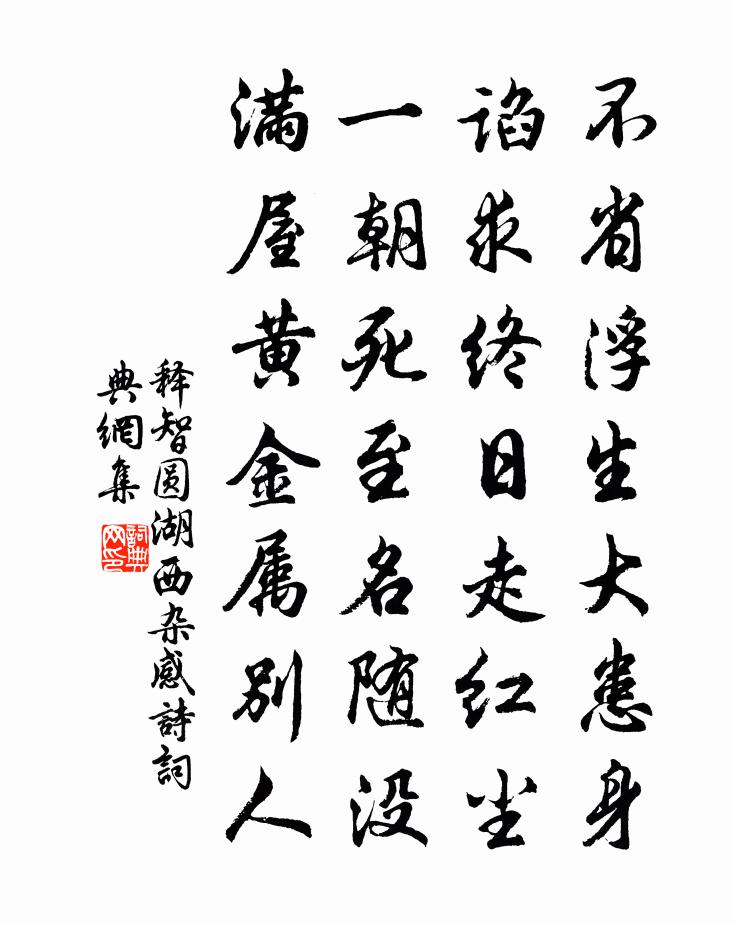 不省浮生大患身
谄求终日走红尘
一朝死至名随没
满屋黄金属别人
释智圆湖西杂感詩詞
典網集
詞典
网印